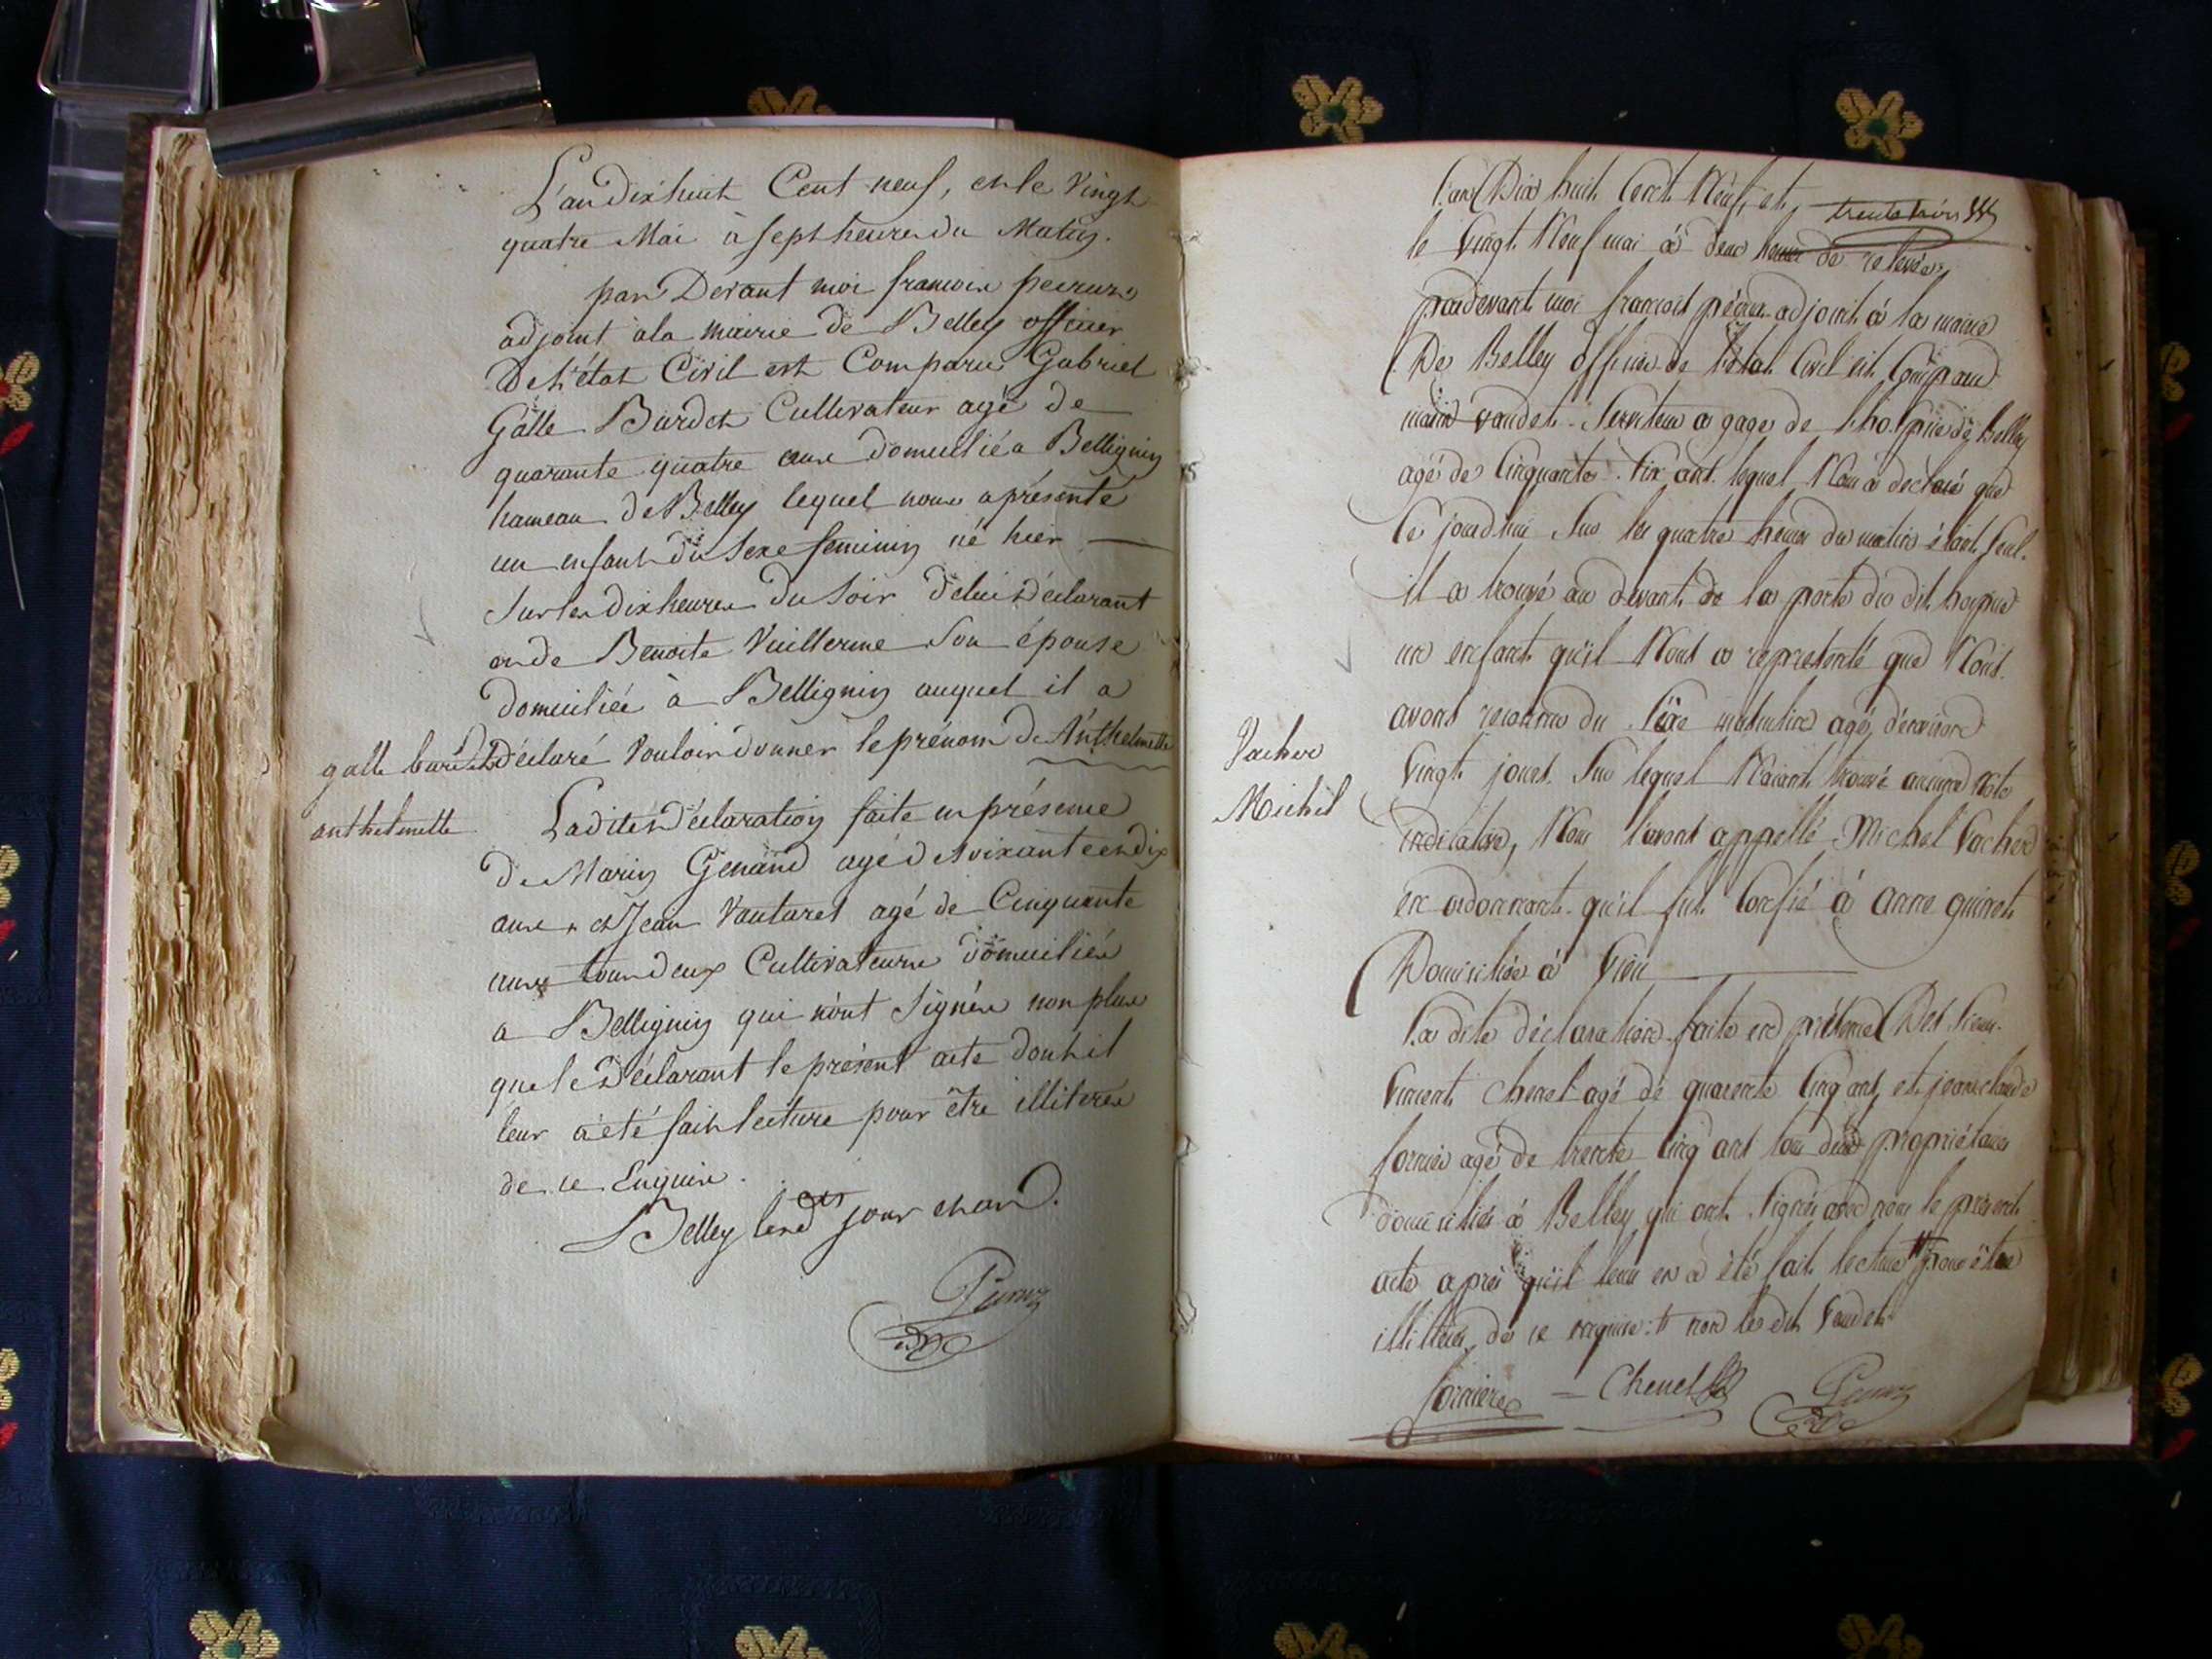 L'an Dix huit Cent neuf, et le Vingt
quatre Mai à Sept heures du Matin.
par Devant moi francois peivuz
adjoint à la mairie de Belley officier
De L'état Civil est Comparu Gabriel
Galle Burdet Cultivateur agé de
quarante quatre ans domicilié a Bellignin
hameau de Belley lequel nous a présenté
un enfant du Sexe feminin né hier
Sur les dix heures du Soir de lui Déclarant
et de Benoite Vuillerme Son épouse
domiciliée à Bellignin auquel il a
Déclaré Vouloir donner le prénom De Anthelmette
galle burdet
anthelmette
La dite Déclaration faite en présence
De Marin Genand agé de Soixante et dix
ans et Jean Vauturet agé de Cinquante
ans tous deux Cultivateurs domiciliés
a Bellignin qui n'ont Signés non plus
que le Déclarant le présent acte dont il
leur a été fait lecture pour être illiteres
de ce Enquis.
Belley les jour et an d.
L'an Dix huit Cent Neuf, et
trente trois
le Vingt Neuf mai à deux heures de relevée,
pardevant moi francois adjoint à la mairie
De Belley officier de l'état Civil est Comparu
vaudet Serviteur a gages de l'hospice de Belley
agé de Cinquante Six ans lequel Nous a déclaré que
Ce jourd'hui Sur les quatre heures du matin étant Seul
il a trouvé au devant de la porte du dit hospice
un enfant qu'il Nous a représenté que Nous
avons reconnu du Sexe masculin agé d'environ
Vingt jours Sur lequel N'aiant trouvé aucune Note
indicative, Nous l'avons appellé Michel Vacher
Vacher
Michel
en ordonnant qu'il fut Confié à anne guinet
Domiciliée à Vieu
La dite déclaration faite en présence Des Sieurs
Vincent Chenet agé de quarante Cinq ans et jean claude
fornier agé de trente Cinq ans tous deux propriétaires
domiciliés à Belley qui ont Signés avec nous le présent
acte après qu'il leur en a été fait lecture pour être
illiteres de ce enquis et non le dit Vaudet
fornier Chenet